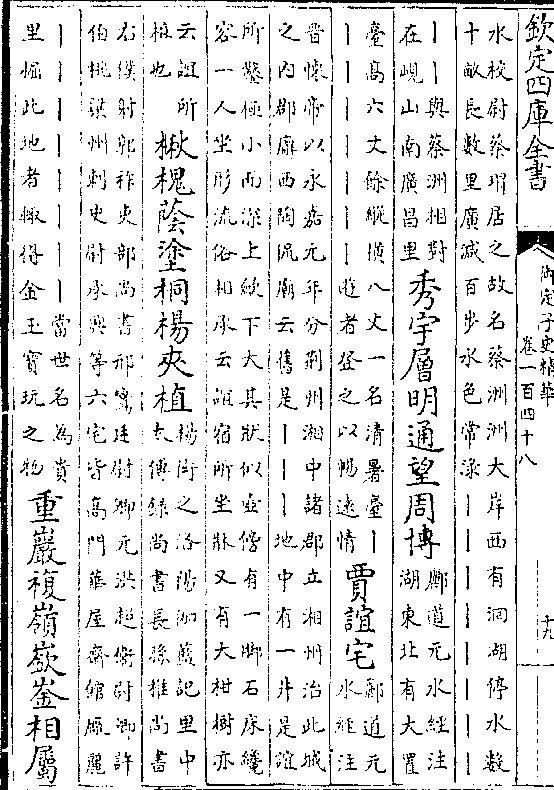 欽定四庫全書
御定子史精華
卷一百四十八
十九
水校尉蔡瑁居之故名蔡洲洲大岸西有洄湖停水數
十畝長數里廣減百步水色常淥｜｜｜｜｜｜｜
｜｜與蔡洲相對
在峴山南廣昌里
秀宇層明通望周博
酈道元水經注
湖東北有大置
臺高六丈餘縱橫八丈一名清暑臺｜
｜｜｜｜｜｜｜遊者登之以暢遠情
賈誼宅
酈道元
水經注
晉懷帝以永嘉元年分荆州湘中諸郡立湘州治此城
之内郡廨西陶侃廟云舊是｜｜｜地中有一井是誼
所鑿極小而深上歛下大其狀似壺傍有一脚石床纔
容一人坐形流俗相承云誼宿所坐牀又有大柑樹亦
云誼所
植也
楸槐蔭塗桐楊夾植
楊衒之洛陽伽藍記里中
太傅録尚書長孫稚尚書
右僕射郭祚吏部尚書邢鸞廷尉卿元洪超衛尉卿許
伯桃梁州刺史尉承興等六宅皆高門華屋齋館敞麗
｜｜｜｜｜｜｜｜當世名為貴
里掘此地者輙得金玉寳玩之物
重巖複嶺嶔崟相屬